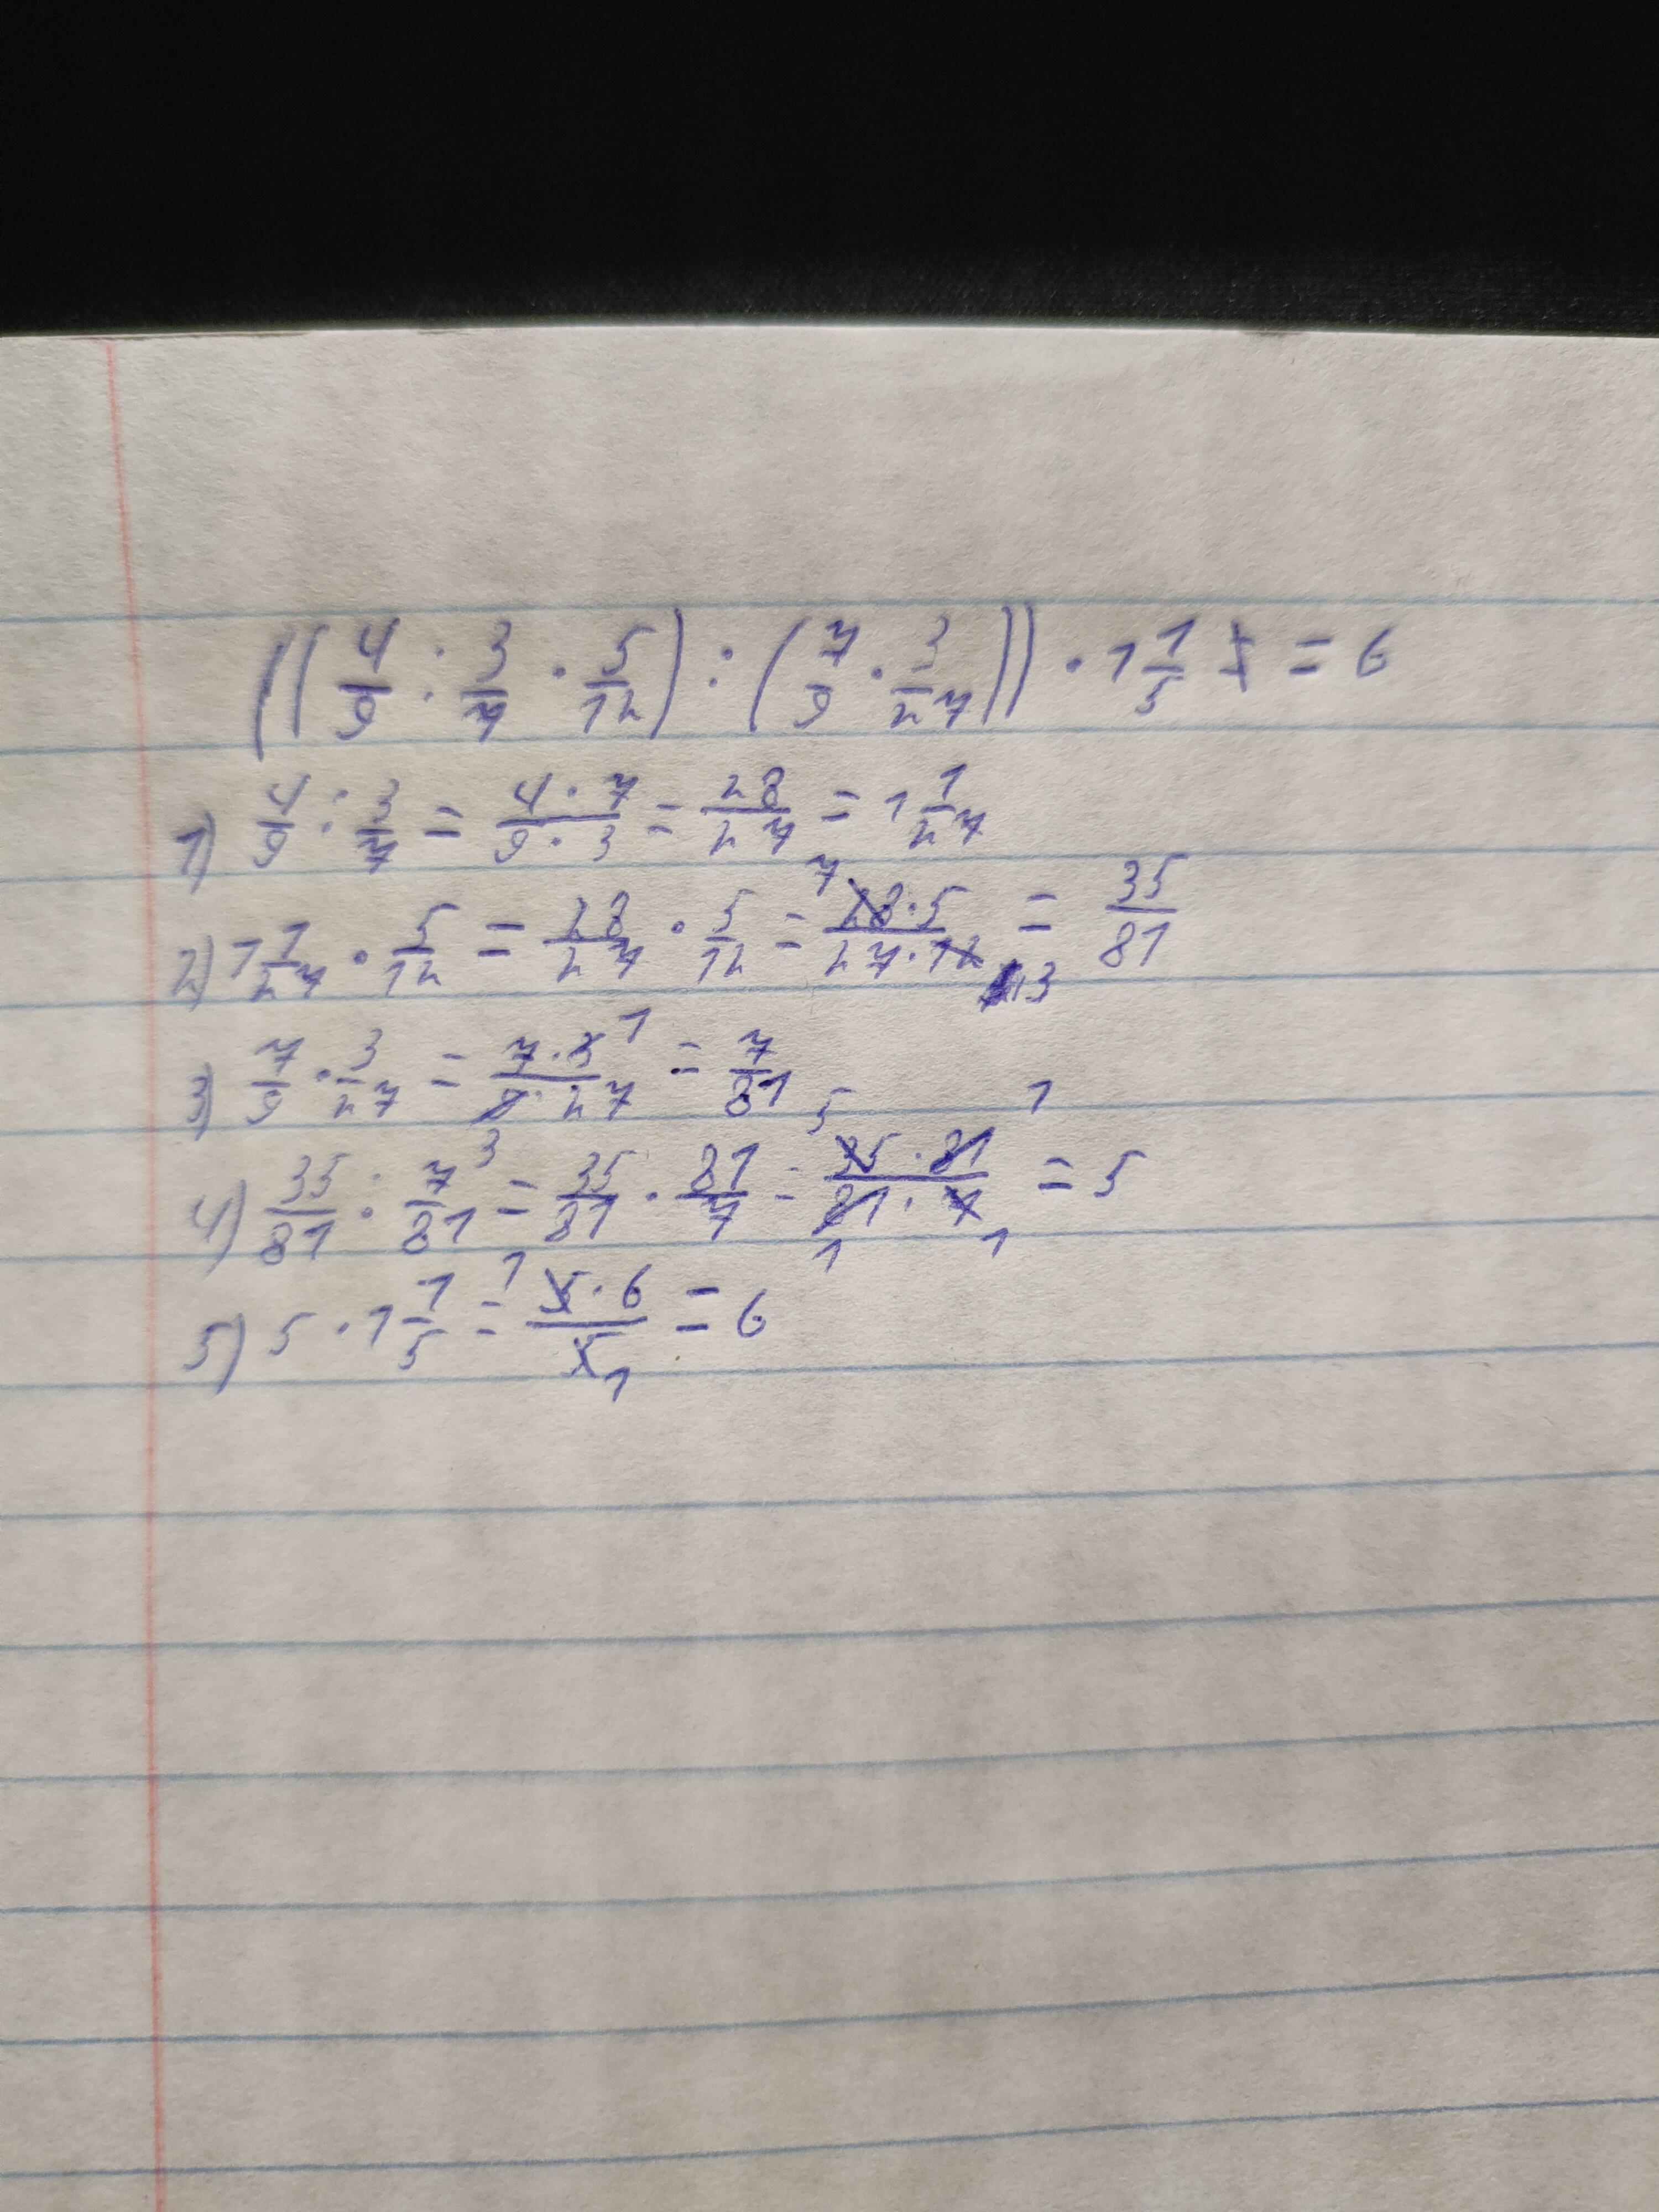 ((4/9 : 3/7 · 5/12) : (7/9 · 3/27)) · 1 1/5 = 6
1) 4/9 : 3/7 = 4·7/9·3 = 28/27 = 1 1/27
2) 1 1/27 · 5/12 = 28/27 · 5/12 = 7 28·5/27·12 3 = 35/81
3) 7/9 · 3/27 = 7·3 1/9·27 3 = 7/81
4) 35/81 : 7/81 = 35/81 · 81/7 = 5 35·81 1/81·7 1 1 = 5
5) 5 · 1 1/5 = 1 5·6/5 1 = 6